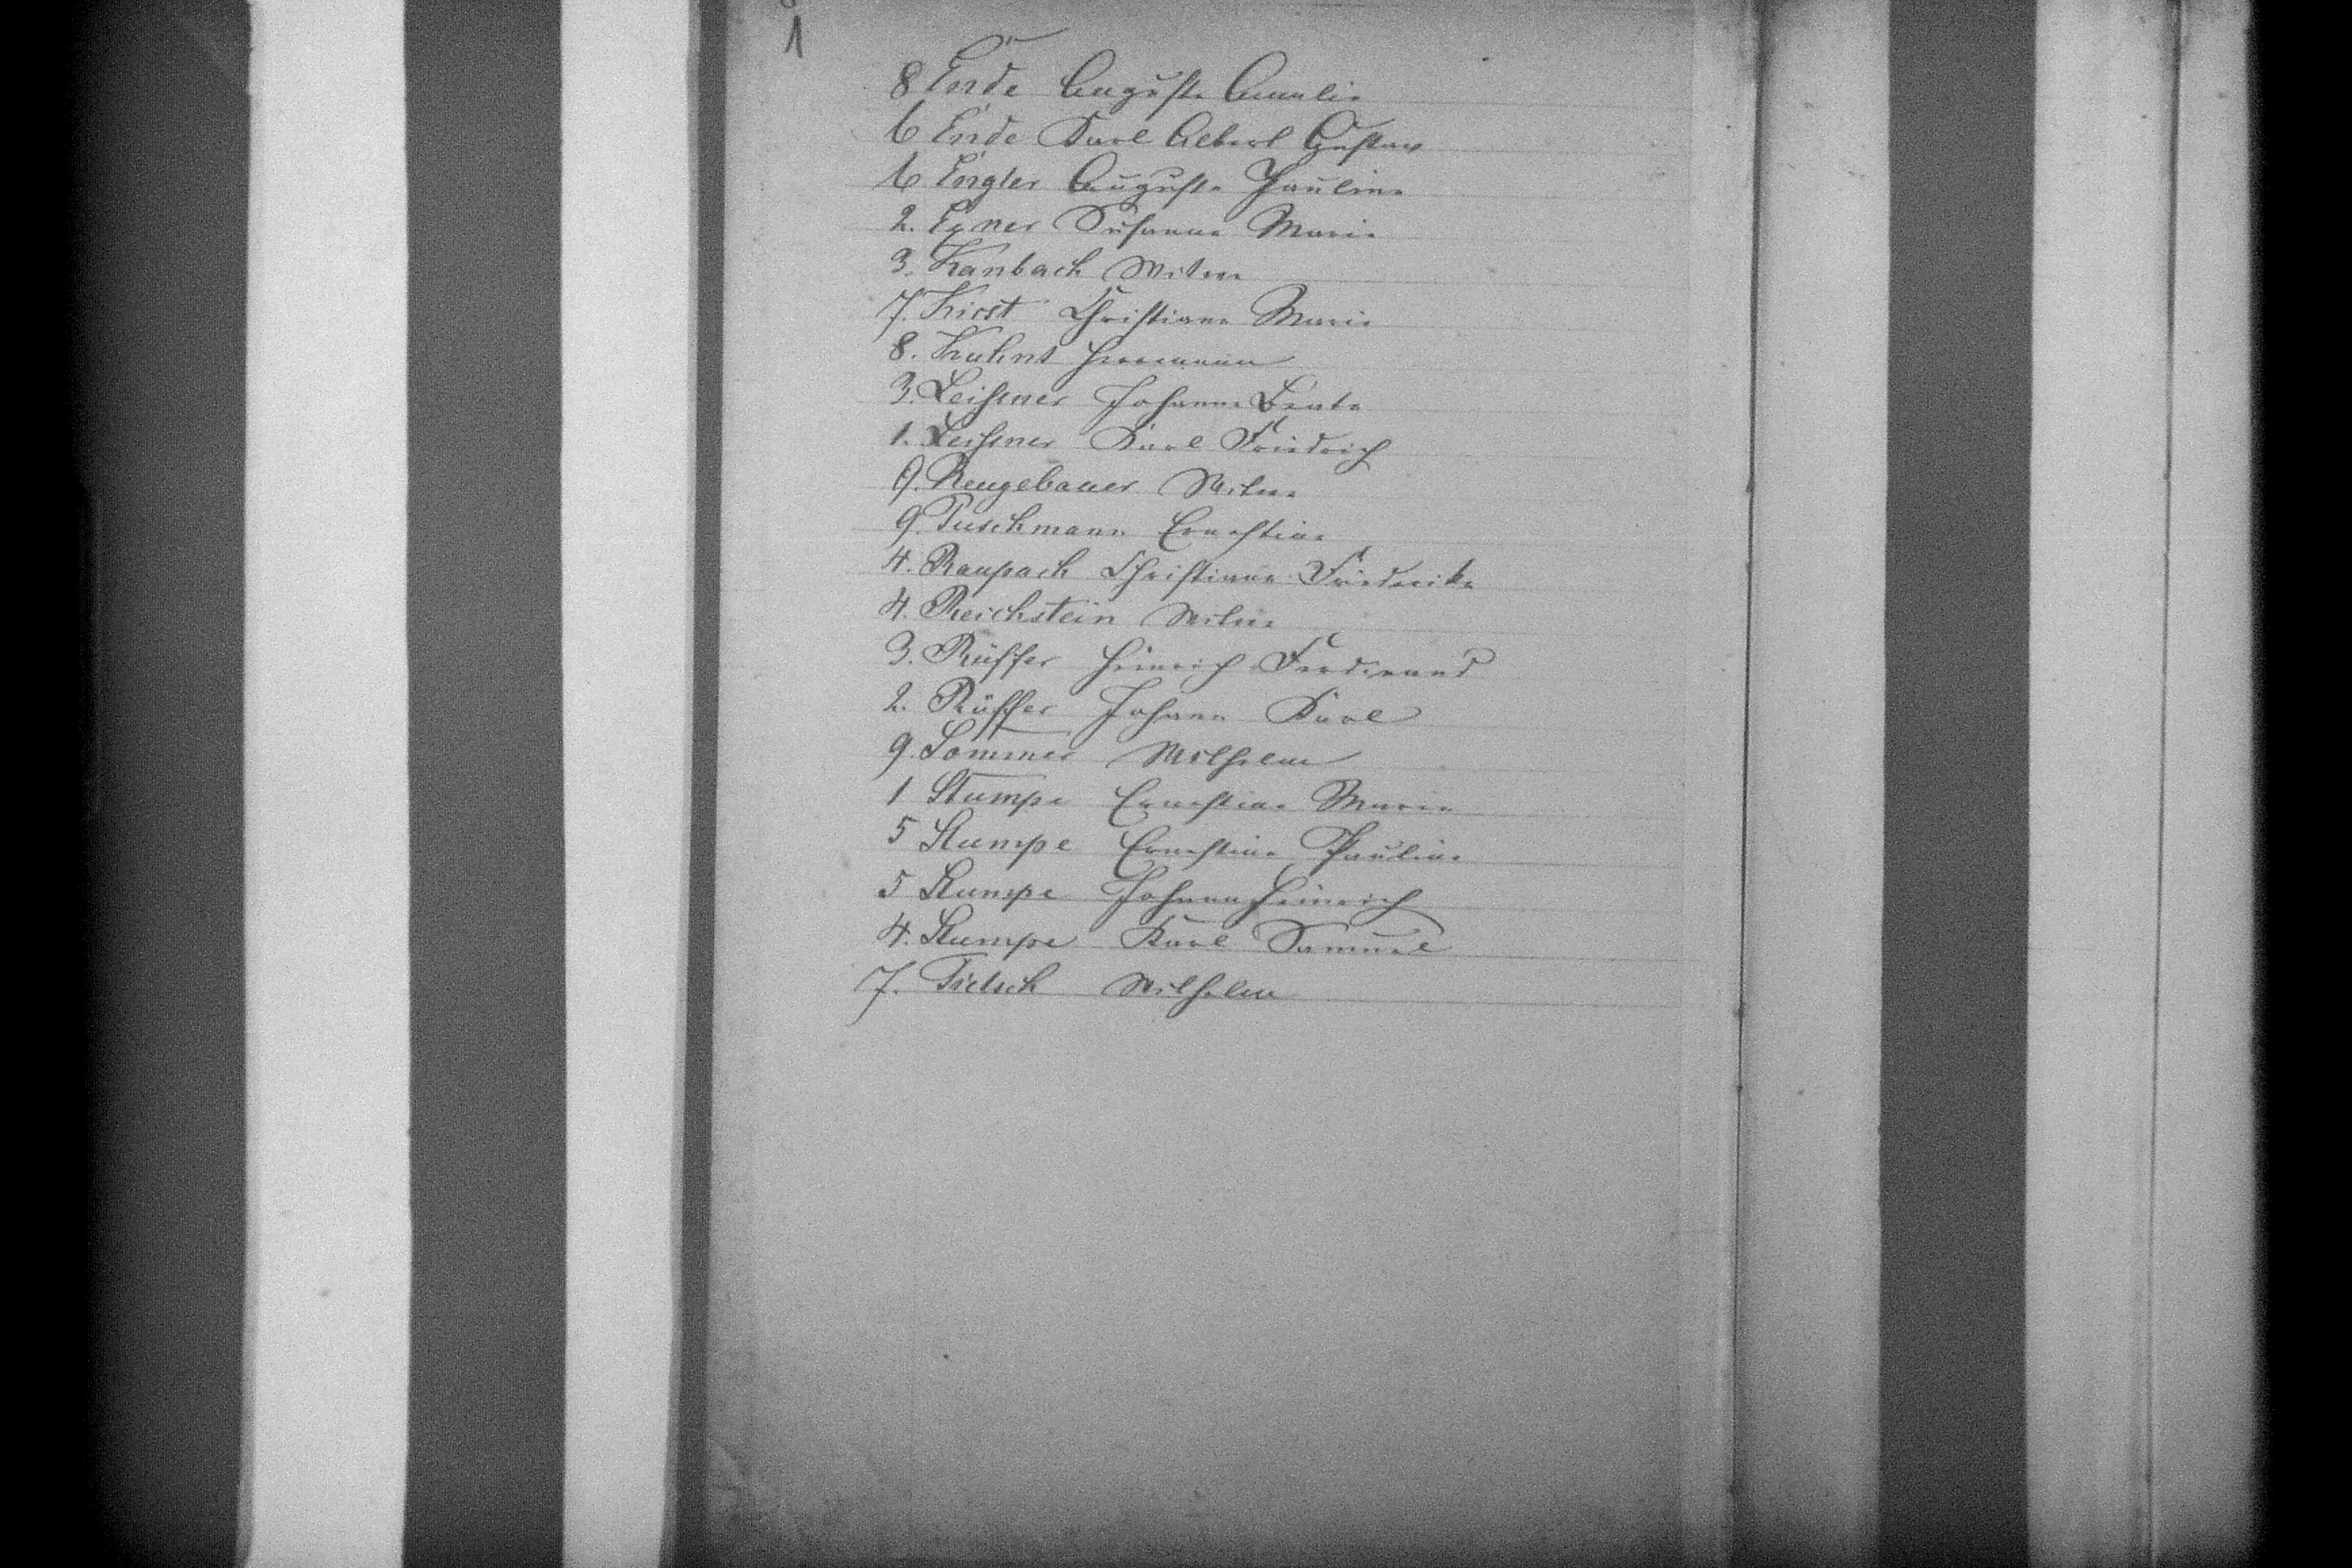 1
8 Ende Auguste Amalie
6 Ende Karl Albert Gustav
6 Engler Auguste Pauline
2. Exner Susanna Marie
3. Kanbach Witwe
7. Kirst Christiane Marie
8. Kuhnt Herrmann
3. Leißner Johanne Beate
1. Leißner Karl Friedrich
9. Neugebauer Witwe
9. Puschmann Ernestine
4. Raupach Christiane Friederike
4. Reichstein Witwe
3. Rüffer Heinrich Ferdinand
2. Rüffer Johann Karl
9. Sommer Wilhelm
1 Stumpe Ernestine Marie
5 Stumpe Ernestine Pauline
5 Stumpe Johann Heinrich
4. Stumpe Karl Samuel
7. Tietsch Wilhelm